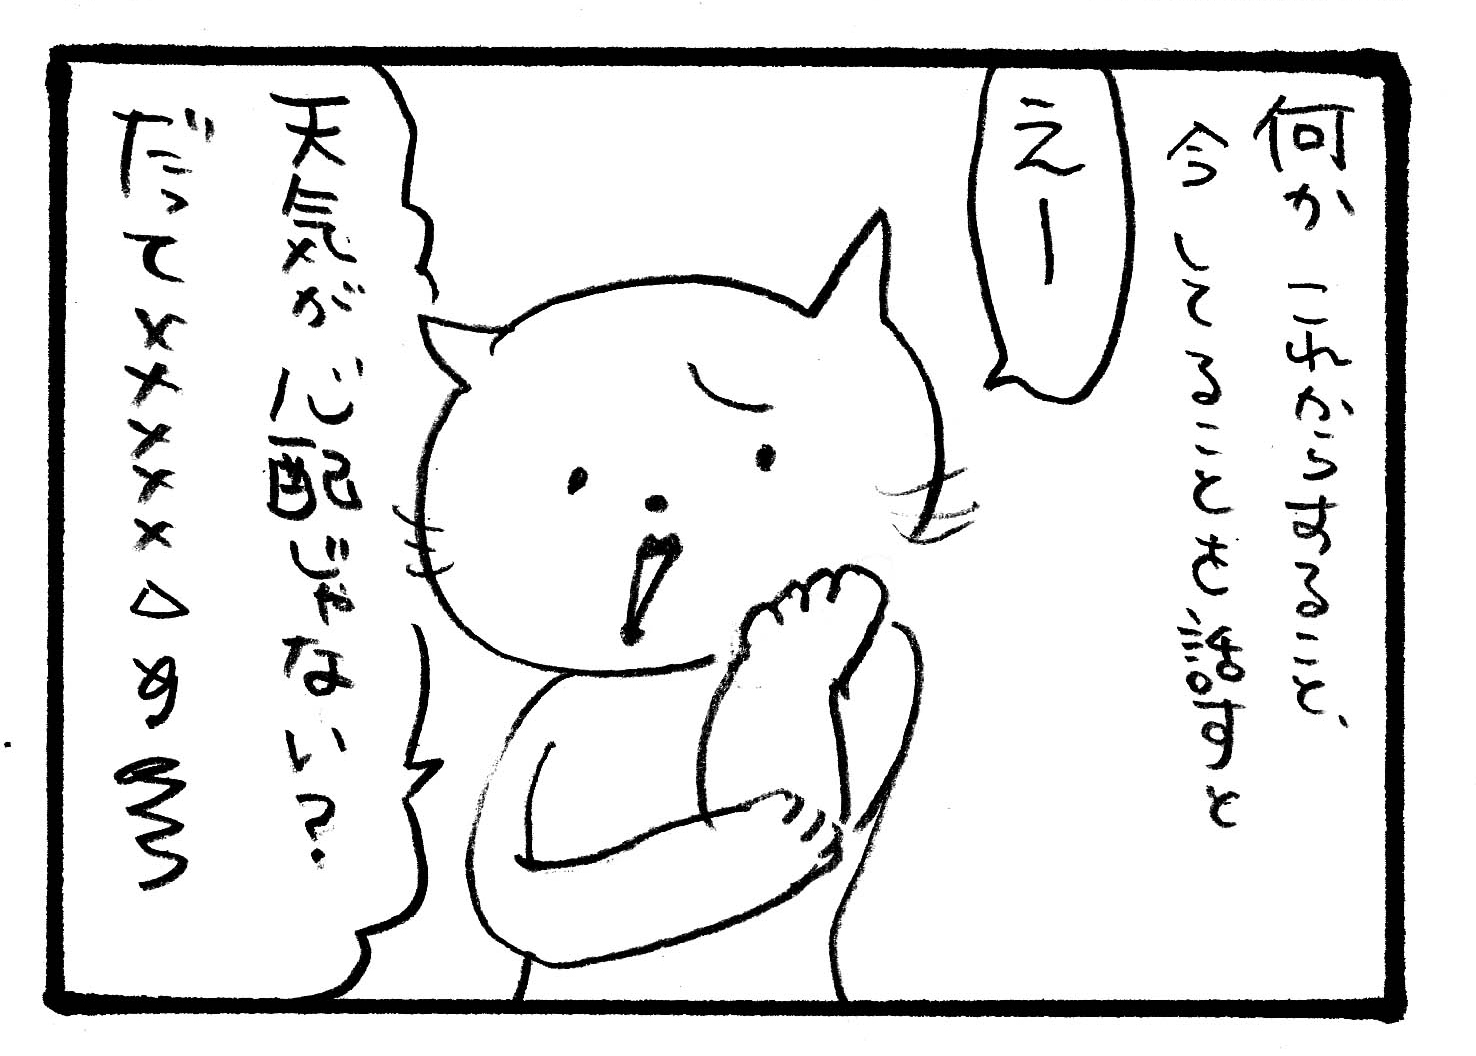 何か これからすること、
今 してることを話すと
えー
天気が心配じゃない?
だって××××××△め